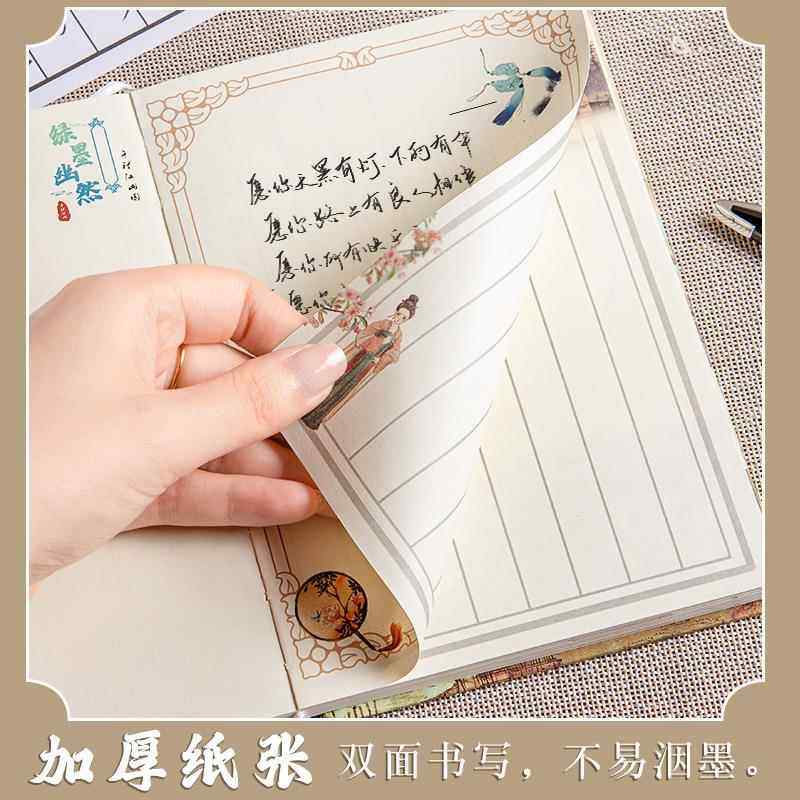 绿墨
幽然
千里江山图
愿你天黑有灯.下雨有伞
愿你路上有良人相伴
愿你所有快乐
愿你
加厚纸张 双面书写，不易洇墨。